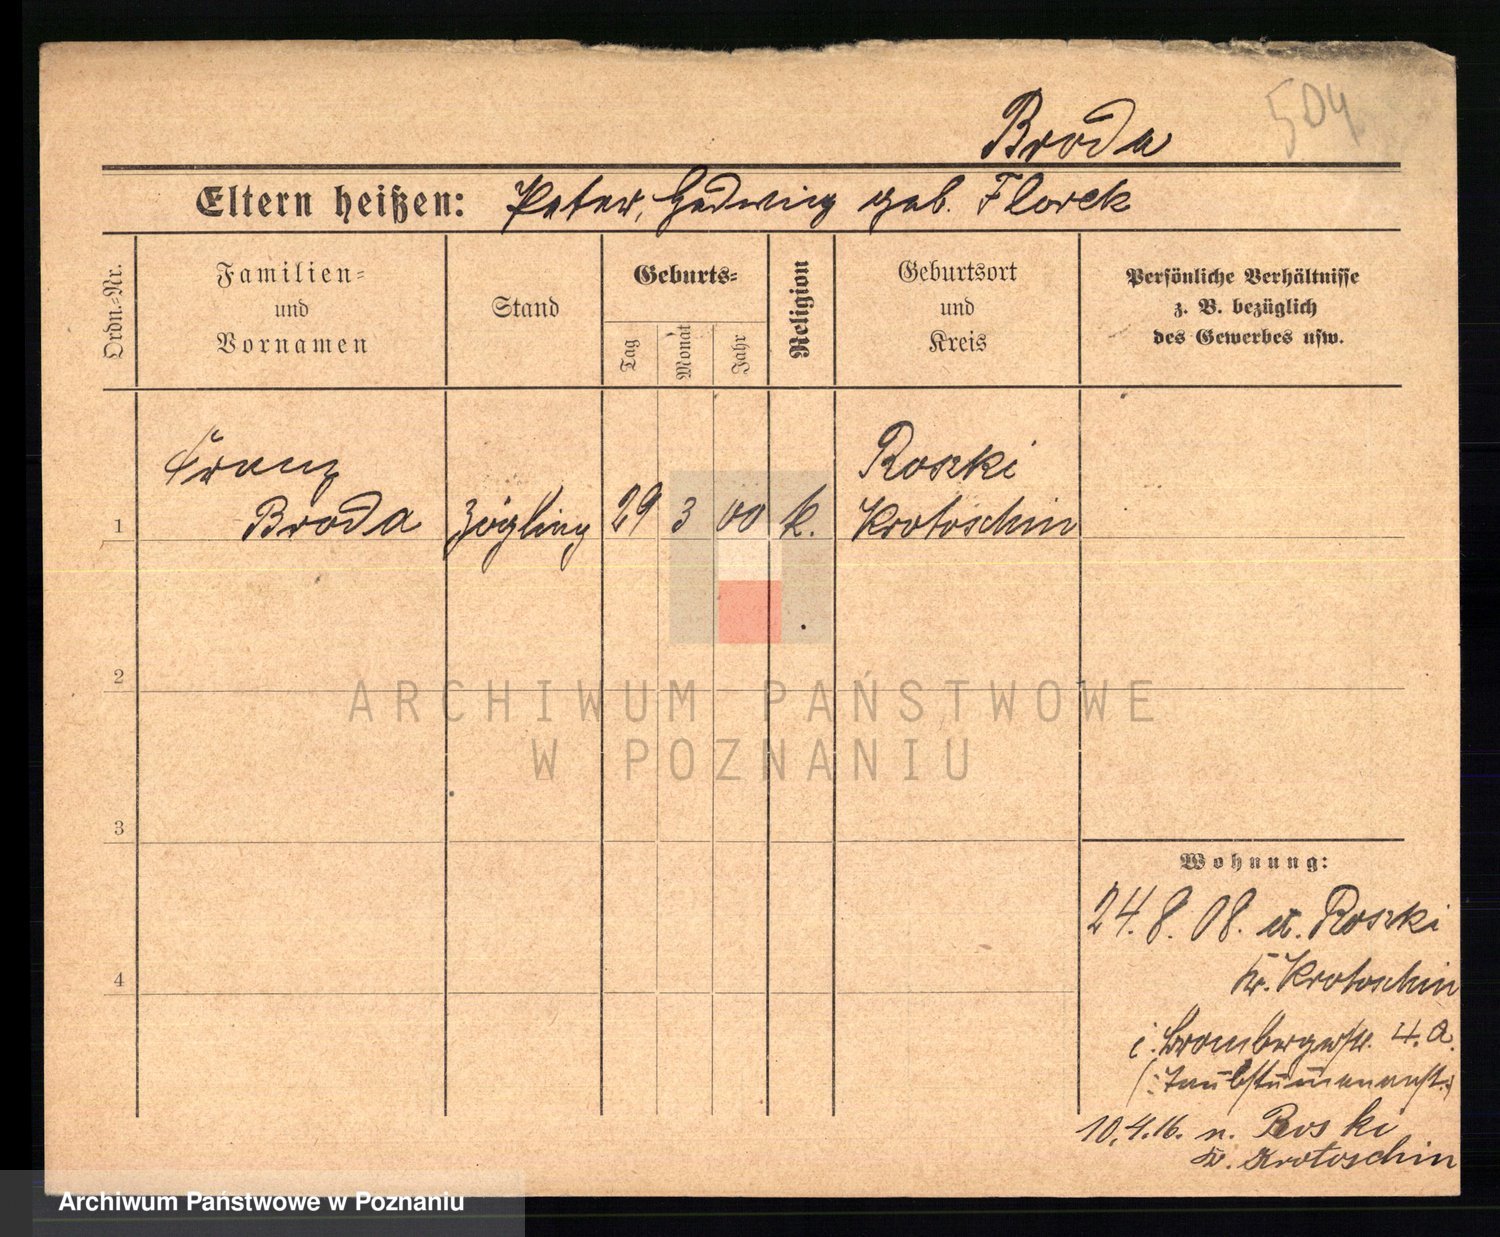 504
Broda
Eltern heißen: Peter, Hedwig geb. Florek
Ordn.-Nr.
Familien-
und
Vornamen
Stand
Geburts-
Tag
Monat
Jahr
Religion
Geburtsort
und
Kreis
Persönliche Verhältnisse
z. B. bezüglich
des Gewerbes usw.
Franz Roszki
1 Broda Zögling 29 3 00 k. Krotoschin
2
3
4
ARCHIWUM PAŃSTWOWE
W POZNANIU
Wohnung:
24. 8. 08. a. Roszki
Kr. Krotoschin
i. Brombergerstr. 4. a.
(: Taubstummenanst.:)
10.4.16. n. Roski
Kr. Krotoschin
Archiwum Państwowe w Poznaniu